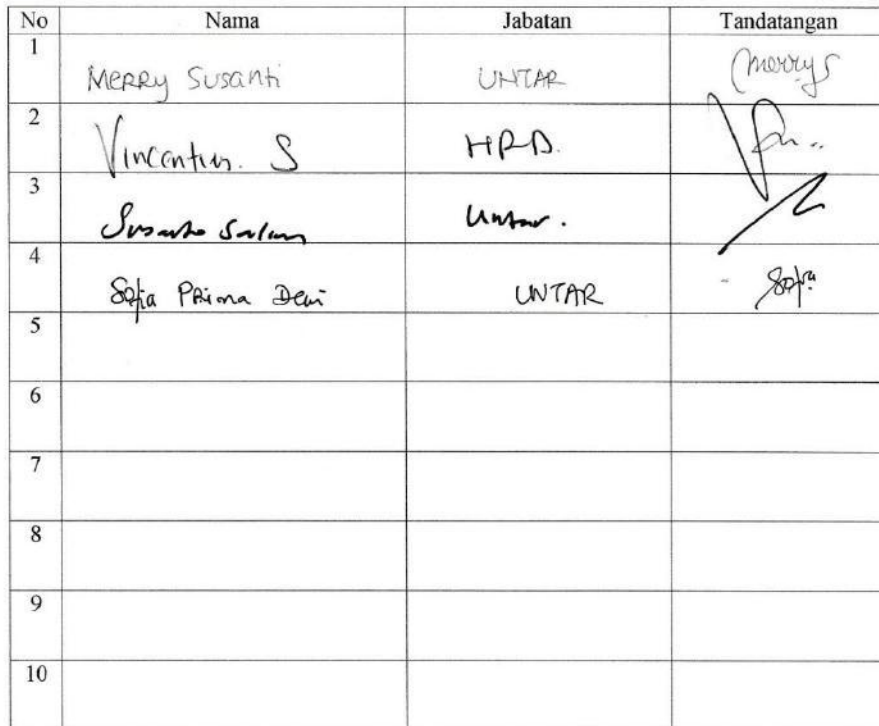 No Nama Jabatan Tandatangan
1 Merry Susanti UNTAR Merrys
2 Vincentius. S HRD.
3 Susanto Salim Untar.
4 Sofia Prima Dewi UNTAR Sofia
5
6
7
8
9
10